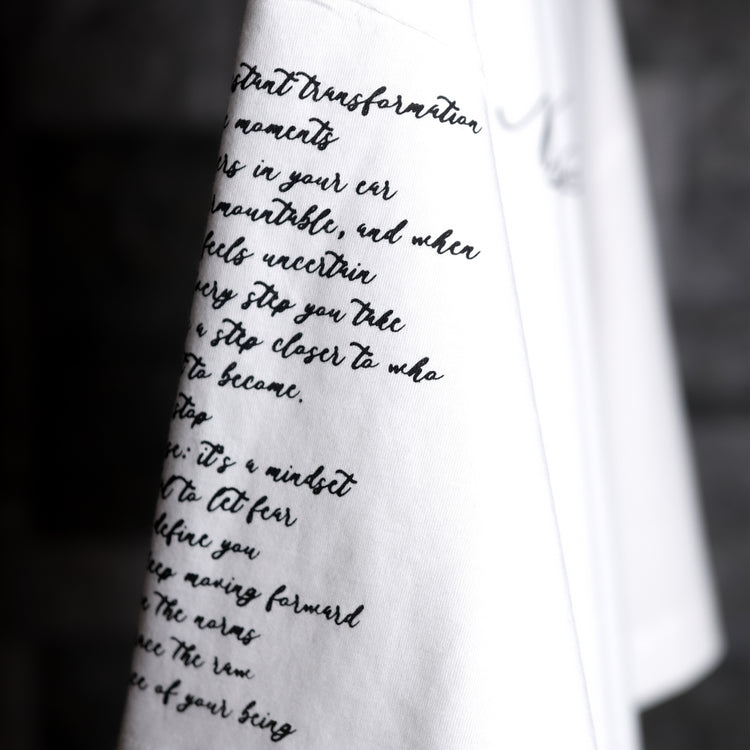 transformation
moments
in your ear
and when
feels uncertain
step you take
a step closer to who
to become.
stop
it's a mindset
to let fear
define you
moving forward
the norms
the raw
of your being